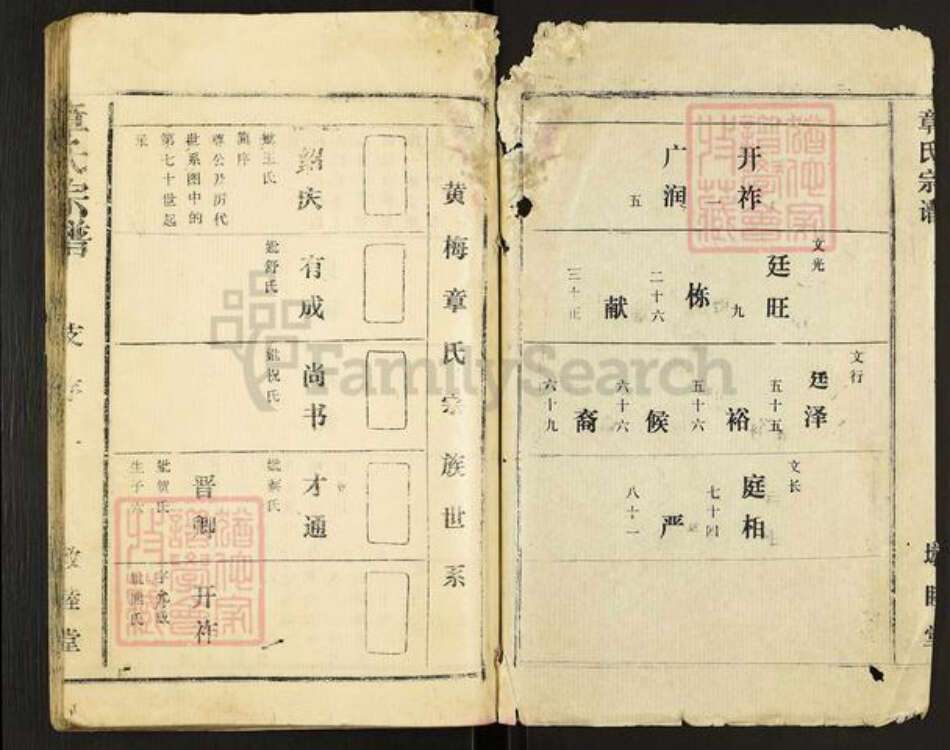 章氏宗谱
开祚
一
广润
五
文光
廷旺
九
栋
二十六
献
文行
廷泽
五十五
裕
五十六
候
六十六
裔
六十九
文长
庭相
七十四
严
八十一
敦睦堂
黄梅章氏宗族世系
绍庆
妣王氏
尊公及历代
世系图中的
第七十世起
有成
妣舒氏
尚书
妣祝氏
才通
晋卿
妣贺氏
生子六
开祚
章氏宗谱
敦睦堂
FamilySearch